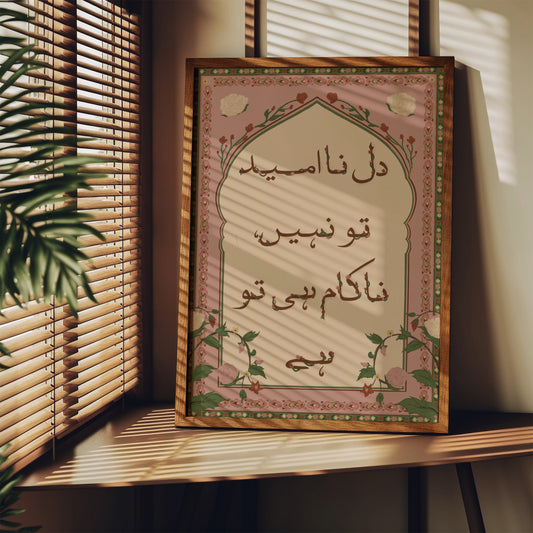 دل نا امید
تو نہیں،
ناکام ہی تو
ہے